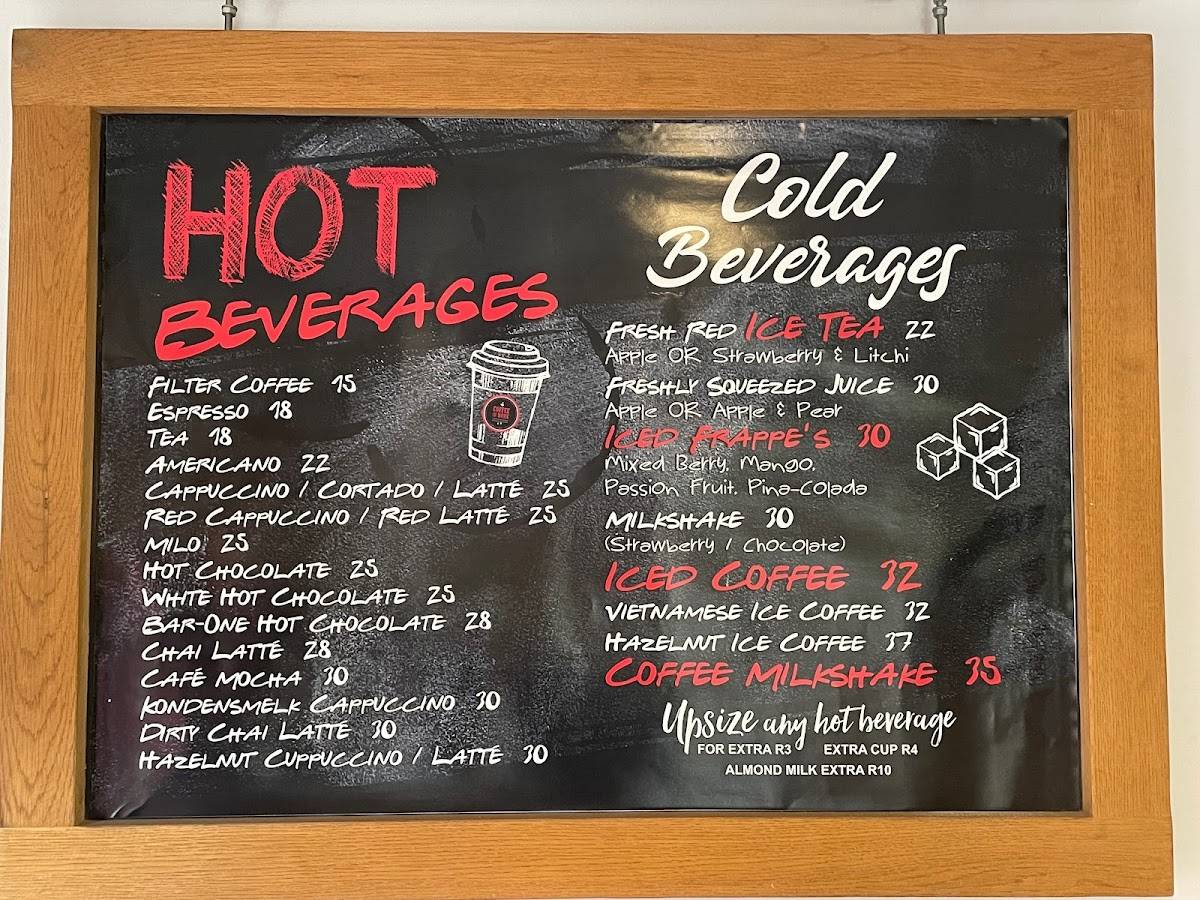 HOT
BEVERAGES
FILTER COFFEE 15
ESPRESSO 18
TEA 18
AMERICANO 22
CAPPUCCINO / CORTADO / LATTÉ 25
RED CAPPUCCINO / RED LATTÉ 25
MILO 25
HOT CHOCOLATE 25
WHITE HOT CHOCOLATE 25
BAR-ONE HOT CHOCOLATE 28
CHAI LATTÉ 28
CAFÉ MOCHA 30
KONDENSMELK CAPPUCCINO 30
DIRTY CHAI LATTÉ 30
HAZELNUT CUPPUCCINO / LATTÉ 30
COFFEE
Cold
Beverages
FRESH RED ICE TEA 22
Apple OR Strawberry & Litchi
FRESHLY SQUEEZED JUICE 30
Apple OR Apple & Pear
ICED FRAPPE'S 30
Mixed Berry, Mango,
Passion Fruit, Pina-Colada
MILKSHAKE 30
(Strawberry / Chocolate)
ICED COFFEE 32
VIETNAMESE ICE COFFEE 32
HAZELNUT ICE COFFEE 37
COFFEE MILKSHAKE 35
Upsize any hot beverage
FOR EXTRA R3 EXTRA CUP R4
ALMOND MILK EXTRA R10